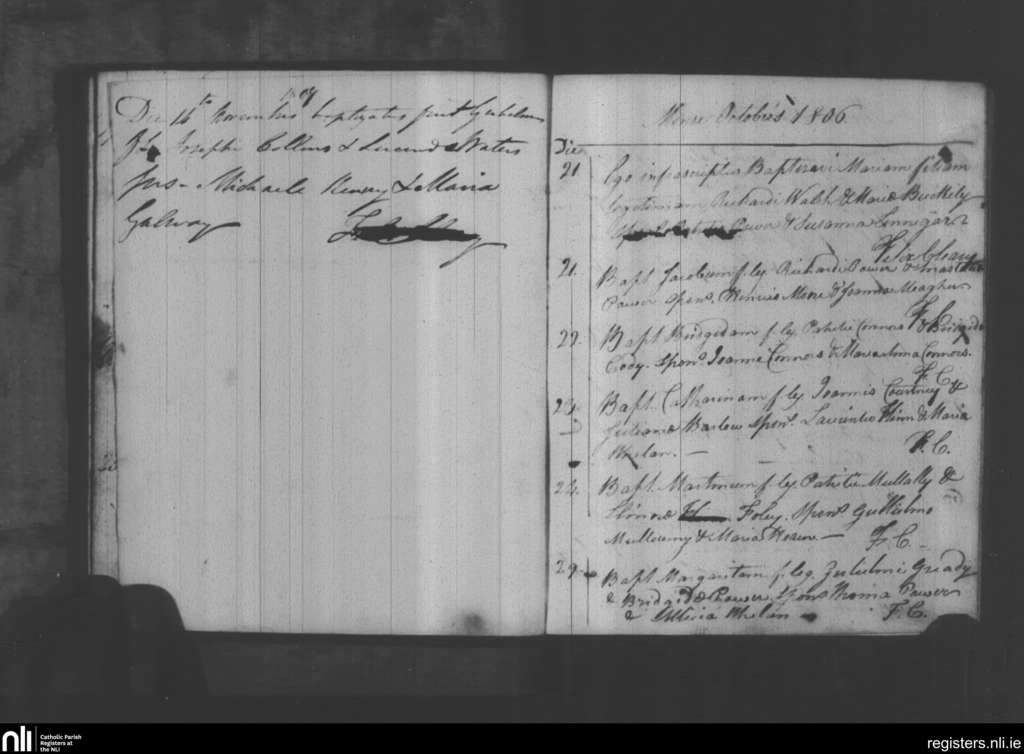 1807
Die 14th Novembris baptizatus fuit Gulielmus
f. l. Josephi Collins & Waters
Michaele Kenny & Maria
Galway
Mense Octobris 1806
Die
21 Ego infrascriptus Baptizavi Mariam filiam
legitimam Richardi Walsh & Maria Buckely
Power & Susanna Finnigan
Felix Cleary
21. Bapt. Jacobum f. leg. Richardi Power &
Power Spons. More & Joanna Meagher
F. C.
22. Bapt. Bridgidam f. leg. Patritii Connors & Brigida
Cody. Spons. Joanne Connors & Maria Anna Connors.
F. C.
24. Bapt. Catharinam f. leg. Joannis Courtney &
Juliana Barlow Spons. Laurentio Flinn & Maria
Whelan. —
F. C.
24. Bapt. Martinum f. leg. Patritii Mullally &
Foley. Spons. Gullielmo
& Maria —
F. C.
29 Bapt. Margaritam f. leg. Gready
& Bridgida Power. Spons. Thoma Power
& Maria Whelan
F. C.
nli
Catholic Parish
Registers at
the NLI
registers.nli.ie